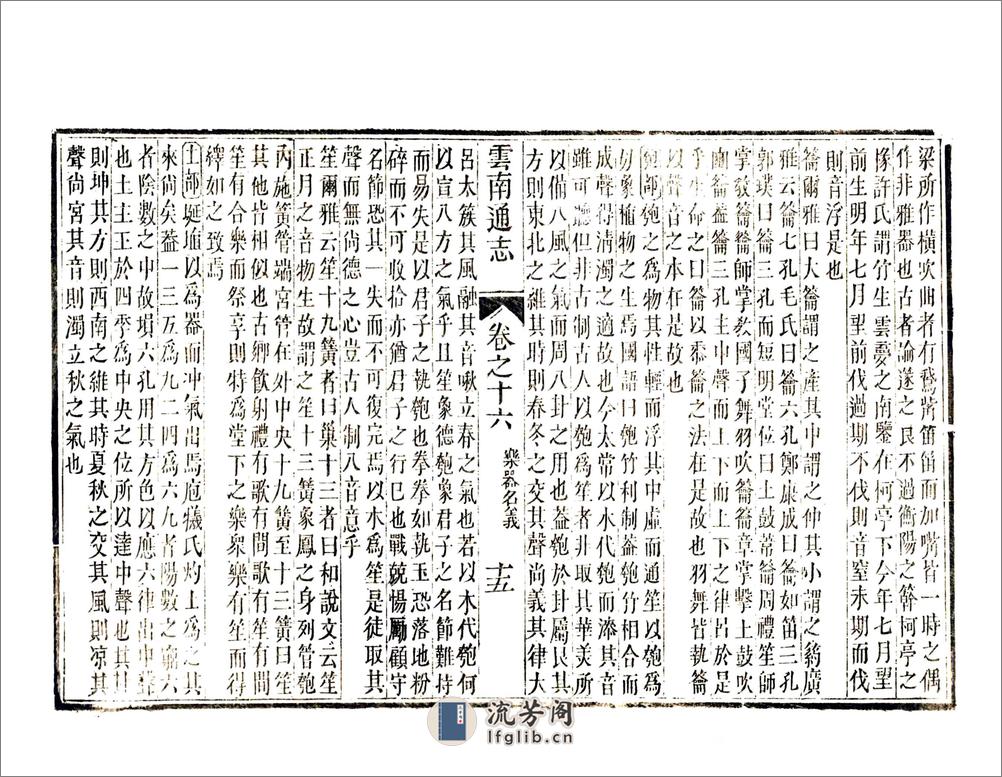 梁所作橫吹曲者有鵞管笛而加嘴皆一時之偶
作非雅器也古者論邃之良不過衡陽之簳柯亭之
椽許氏謂竹生雲夢之南鑒在柯亭下今年七月望
前生明年七月望前伐過期不伐則音窒未期而伐
則音浮是也
籥爾雅曰大籥謂之產其中謂之仲其小謂之箹廣
雅云籥七孔毛氏曰籥六孔鄭康成曰籥如笛三孔
郭璞曰籥三孔而短明堂位曰土鼓蕢籥周禮笙師
掌敎籥籥師掌敎國子舞羽吹籥籥章掌擊土鼓吹
豳籥蓋籥三孔主中聲而上下之律呂於是
乎生命之曰籥以黍籥之法在是故也羽舞皆執籥
以聲音之本在是故也
匏部匏之爲物其性輕而浮其中虛而通笙以匏爲
之象植物之生焉國語曰匏竹利制蓋匏竹相合而
成聲得淸濁之適故也今太常以木代匏而漆其音
雖可聽但非古制古人以匏爲笙者非取其華美所
以備八風之氣而周八卦之用也蓋匏於卦屬艮其
方則東北之維其時則春冬之交其聲尚義其律大
雲南通志
卷之十六
樂器名義
十五
呂太簇其風融其音啾立春之氣也若以木代匏何
以宣八方之氣乎且笙象德匏象君子之名節難持
而易失是以君子之執匏也拳拳如執玉恐落地粉
碎而不可收拾亦猶君子之行巳也戰兢惕厲顧守
名節恐其一失而不可復完焉以木爲笙是徒取其
聲而無尚德之心豈古人制八音意乎
笙爾雅云笙十九簧者曰巢十三者曰和說文云笙
正月之音物生故謂之笙十三簧象鳳之身列管匏
內施簧管端宮管在外中央十九簧至十三簧曰笙
其他皆相似也古鄕飮射禮有歌有間歌有笙有間
笙有合樂而祭享則特爲堂下之樂衆樂有笙而得
繹如之致焉
土部埏埴以爲器而冲氣出焉庖犧氏灼土爲之其
來尚矣蓋一三五爲九二四爲六九者陽數之窮六
者陰數之中故塤六孔用其方色以應六律出中聲
也土主王於四季爲中央之位所以達中聲也其卦
則坤其方則西南之維其時夏秋之交其風則凉其
聲尚宮其音則濁立秋之氣也
流芳阁
lfglib.cn